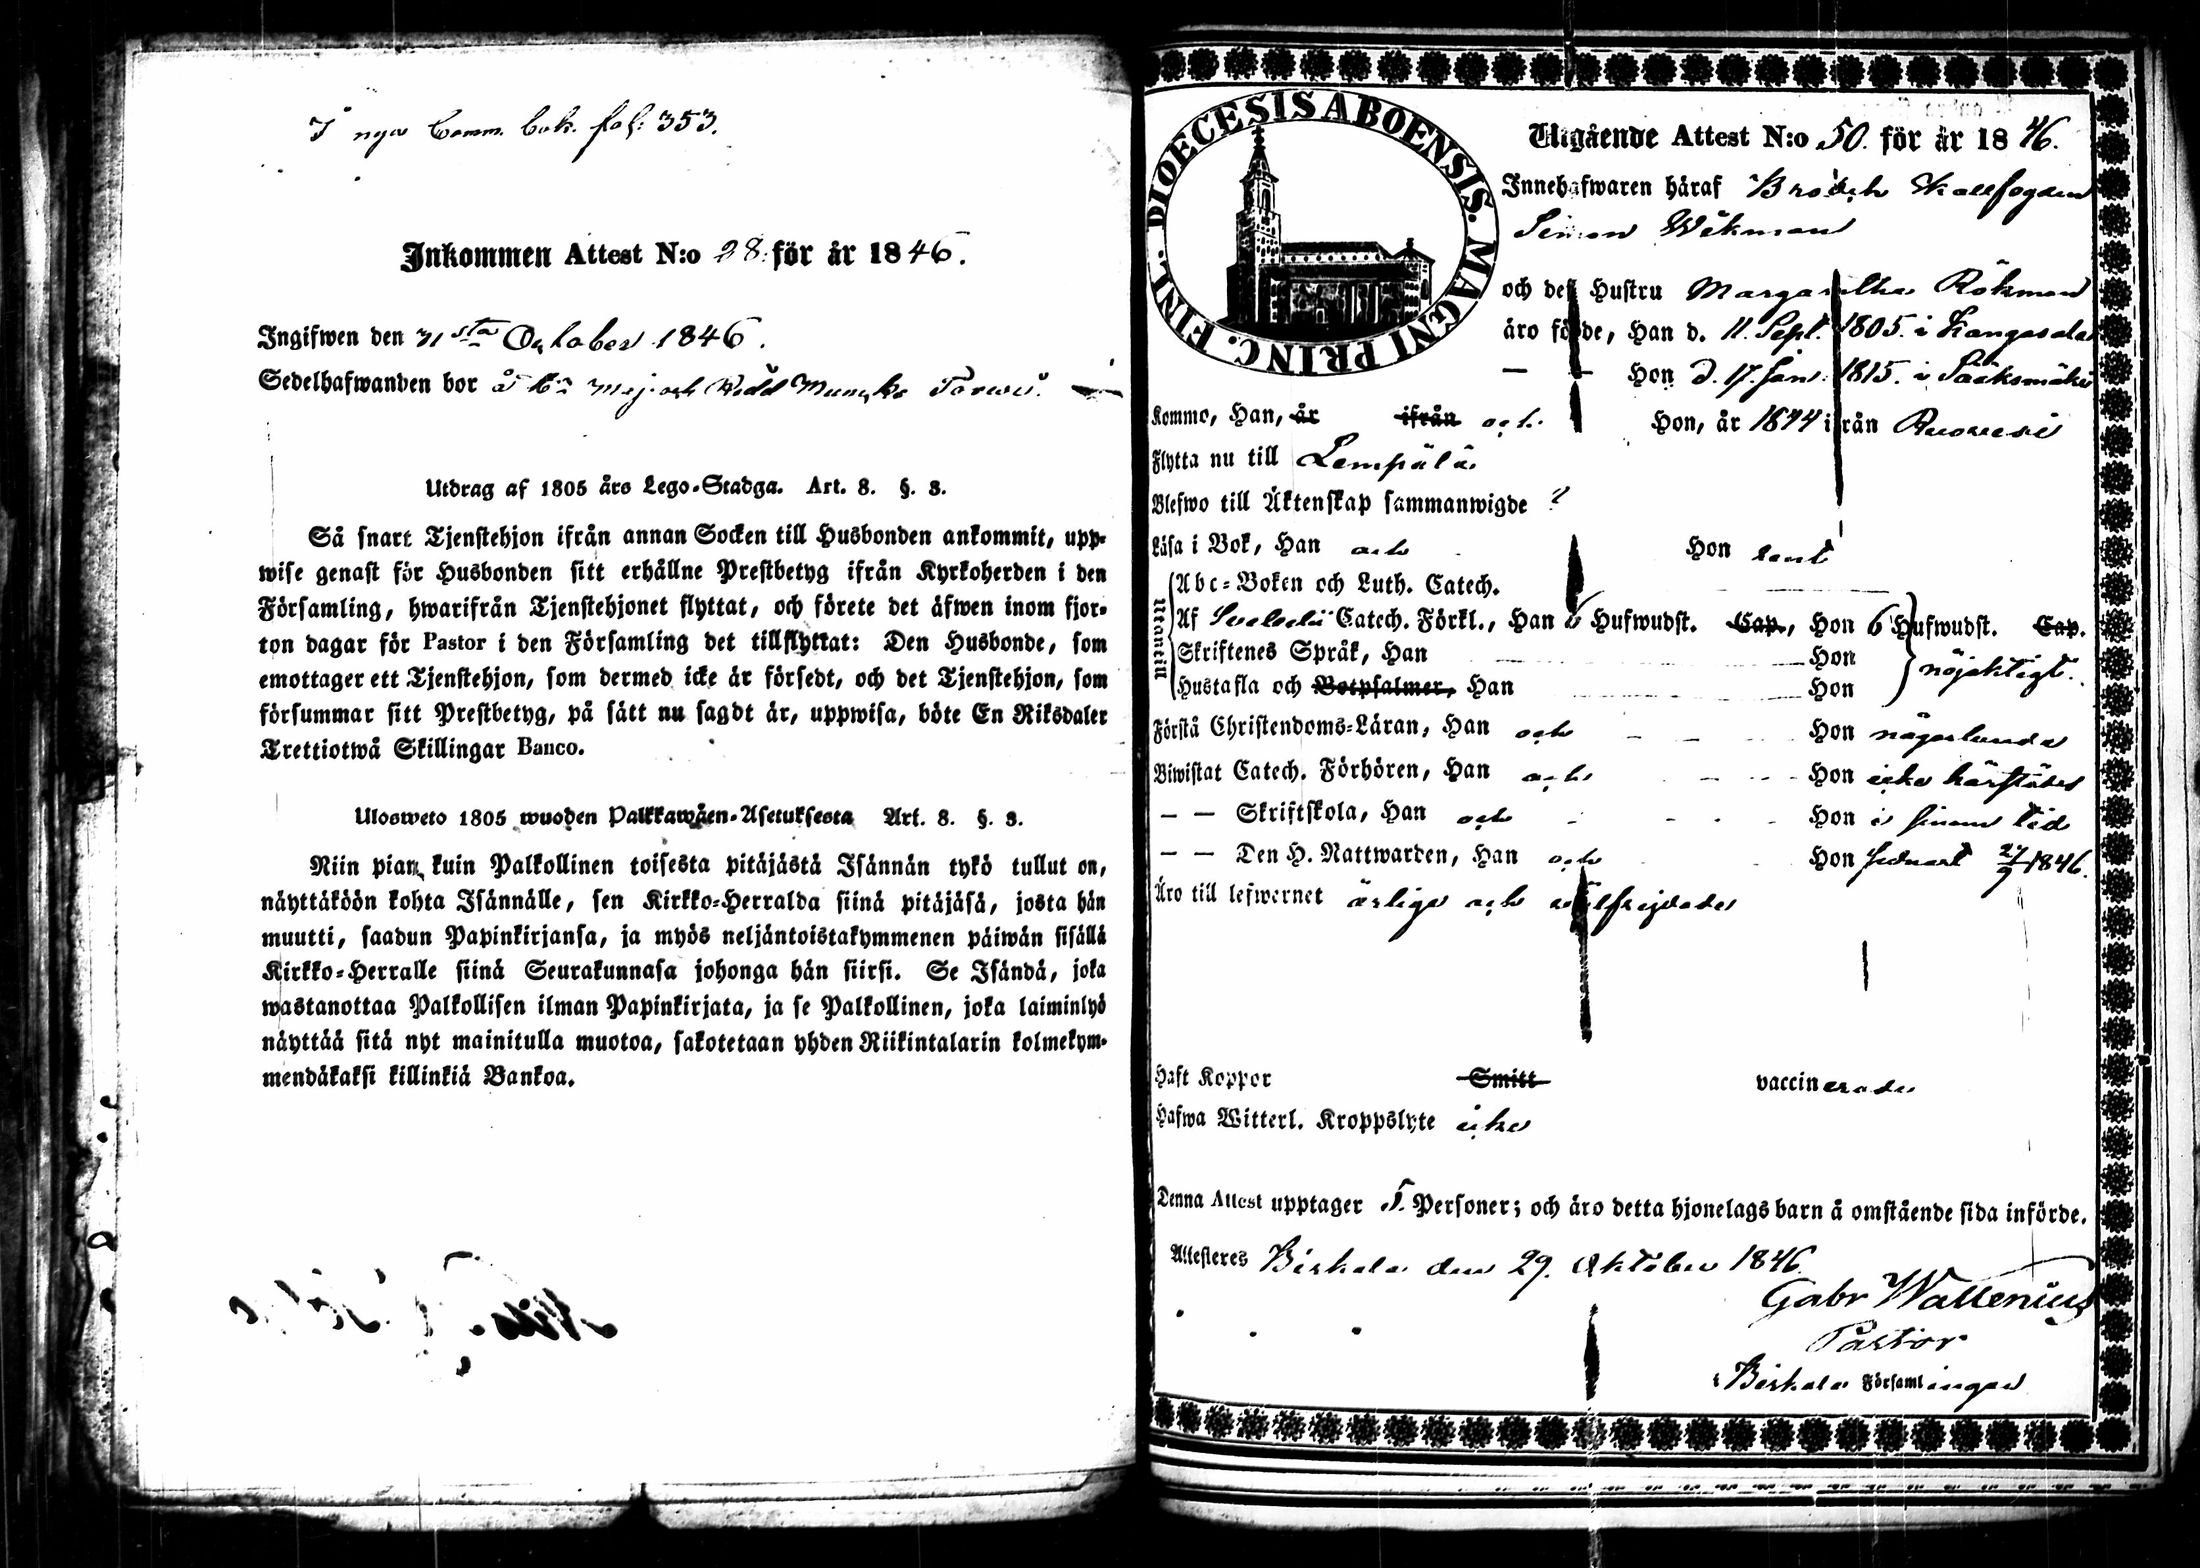 I nya Comm. bok. fol: 353.
Inkommen Attest N:o 28. för år 1846.
Ingifwen den 31sta October 1846.
Sedelhafwanden bor å
Utdrag af 1805 års Lego-Stadga. Art. 8. §. 3.
Så snart Tjenstehjon ifrån annan Socken till Husbonden ankommit, upp-
wise genast för Husbonden sitt erhållne Prestbetyg ifrån Kyrkoherden i den
Församling, hwarifrån Tjenstehjonet flyttat, och förete det äfwen inom fjor-
ton dagar för Pastor i den Församling det tillflyttat: Den Husbonde, som
emottager ett Tjenstehjon, som dermed icke är försedt, och det Tjenstehjon, som
försummar sitt Prestbetyg, på sätt nu sagdt är, uppwisa, böte En Riksdaler
Trettiotwå Skillingar Banco.
Ulosweto 1805 wuoden Palkkawäen-Asetuksesta Art. 8. §. 3.
Niin pian kuin Palkollinen toisesta pitäjästä Isännän tykö tullut on,
näyttäköön kohta Isännälle, sen Kirkko-Herralda siinä pitäjäsä, josta hän
muutti, saadun Papinkirjansa, ja myös neljäntoistakymmenen päiwän sisällä
Kirkko-Herralle siinä Seurakunnasa johonga hän siirsi. Se Isändä, joka
wastanottaa Palkollisen ilman Papinkirjata, ja se Palkollinen, joka laiminlyö
näyttää sitä nyt mainitulla muotoa, sakotetaan yhden Riikintalarin kolmekym-
mendäkaksi killinkiä Bankoa.
DIOECESIS ABOENSIS. MAGNI PRINC. FINL.
Utgående Attest N:o 50. för år 1846.
Innehafwaren häraf Skallfogden
Simon Wikman
och des Hustru Margaretha Rökman
äro födde, Han d. 11. Sept. 1805. i Kangasala
— — Hon d. 17. Jan. 1815. i Sääksmäki
Komme, Han, år ifrån och Hon, år 1844 ifrån Ruovesi
Flytta nu till Lempälä
Blefwo till Äktenskap sammanwigde
Läsa i Bok, Han och Hon rent
Utantill
Abc-Boken och Luth. Catech.
Af Svebelii Catech. Förkl., Han 6 Hufwudst. Cap., Hon 6 Hufwudst. Cap.
Skriftenes Språk, Han Hon
Hustafla och Botpsalmer, Han Hon
nöjaktigt.
Förstå Christendoms-Läran, Han och Hon någorlunda
Biwistat Catech. Förhören, Han och Hon icke härstädes
— — Skriftskola, Han och Hon i sinom tid
— — Den H. Nattwarden, Han och Hon senast 27/9 1846.
Äro till lefwernet ärlige och wälfrejdade
Haft Koppor Smitt vaccinerade
Hafwa Witterl. Kroppslyte icke
Denna Attest upptager 5. Personer; och äro detta hjonelags barn å omstående sida införde.
Attesteres Birkala den 29. Oktober 1846.
Gabr Wallenius
Pastor
i Birkala Församlingar